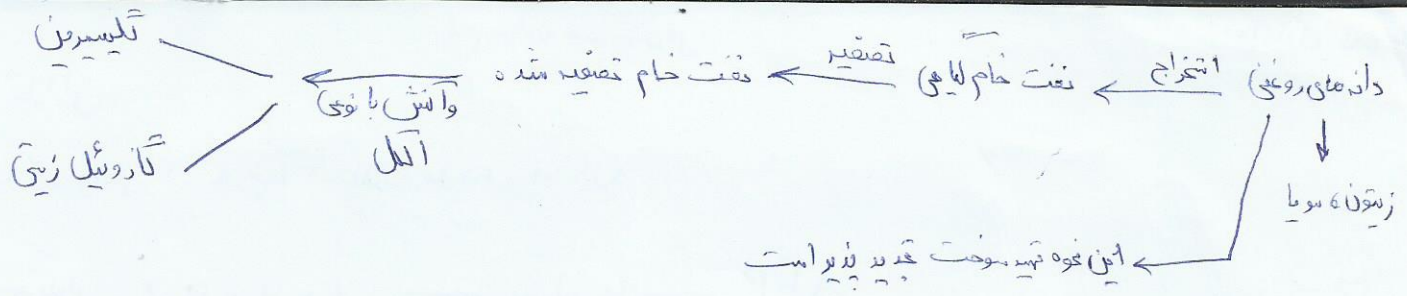 دانه های روغنی استخراج نفت خام گیاهی تصفیه نفت خام تصفیه شده واکنش با نوعی الکل
گلیسیرین
گازوئیل زیستی
زیتون، سویا
این نحوه تهیه سوخت تجدید پذیر است